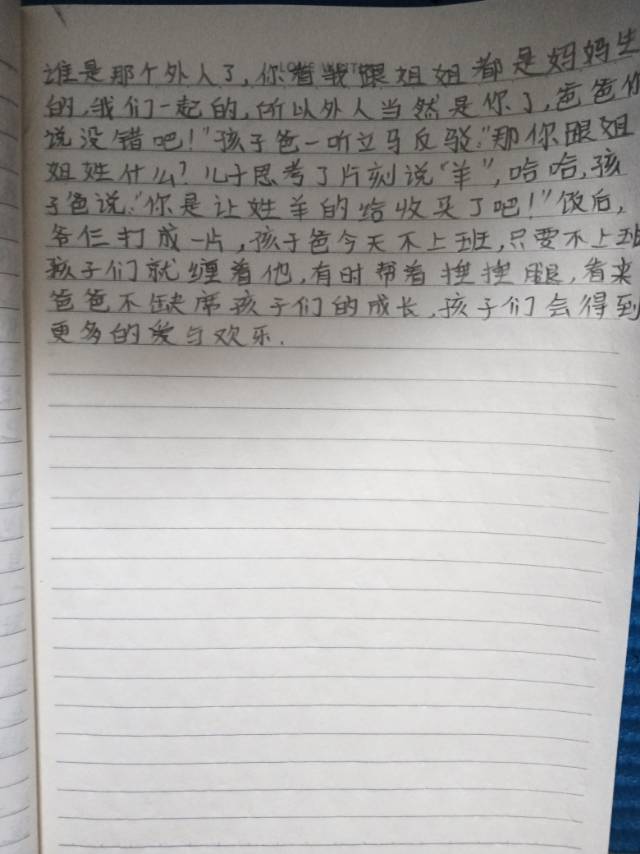 谁是那个外人了,你看我跟姐姐都是妈妈生
的,我们一起的,所以外人当然是你了,爸爸你
说没错吧!"孩子爸一听立马反驳:"那你跟姐
姐姓什么?儿子思考了片刻说"羊",哈哈,孩
子爸说:"你是让姓羊的给收买了吧!"饭后,
爷仨打成一片,孩子爸今天不上班,只要不上班
孩子们就缠着他,有时帮着捶捶腿,看来
爸爸不缺席孩子们的成长,孩子们会得到
更多的爱与欢乐.